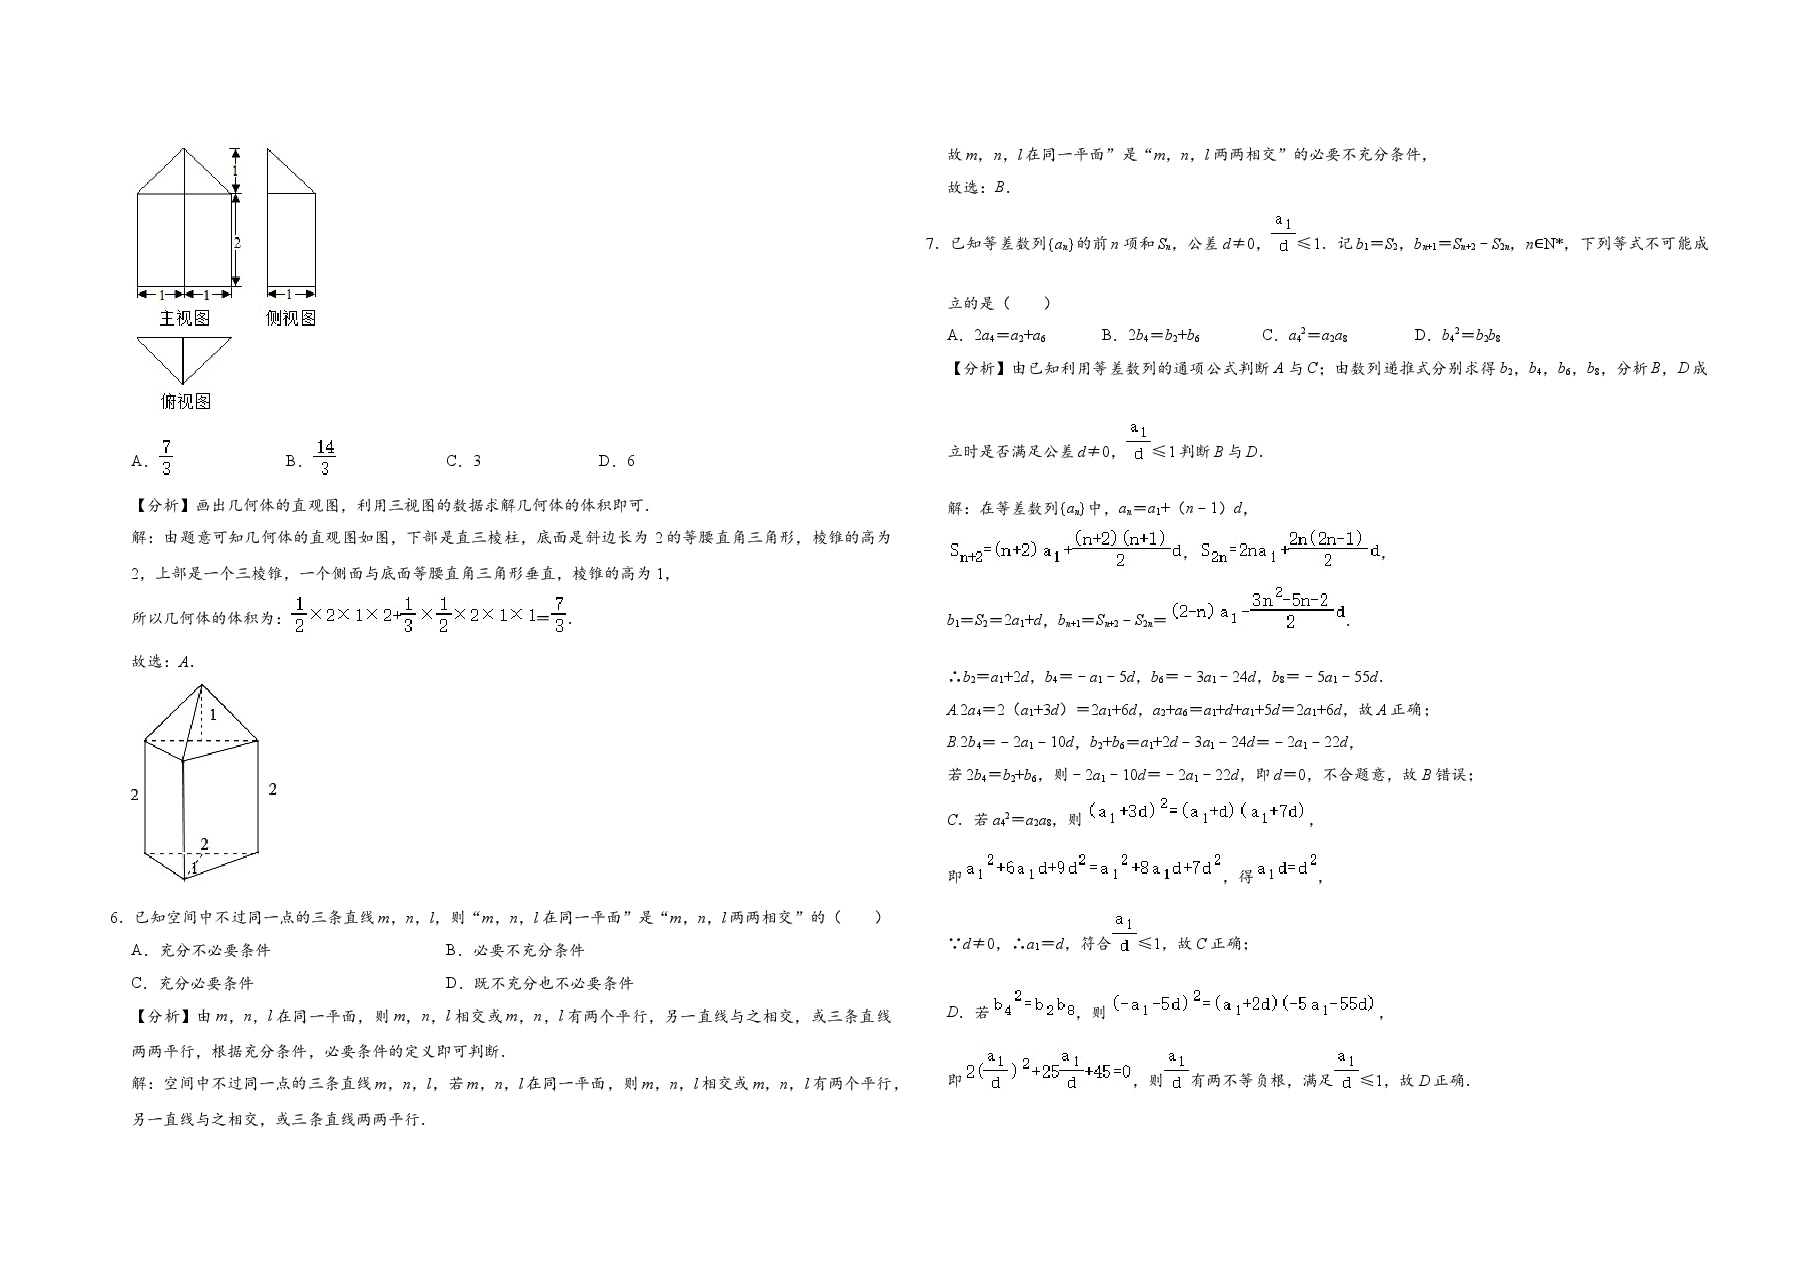 1
2
1 1
1
主视图
侧视图
俯视图
A．7/3 B．14/3 C．3 D．6
【分析】画出几何体的直观图，利用三视图的数据求解几何体的体积即可．
解：由题意可知几何体的直观图如图，下部是直三棱柱，底面是斜边长为 2 的等腰直角三角形，棱锥的高为
2，上部是一个三棱锥，一个侧面与底面等腰直角三角形垂直，棱锥的高为 1，
所以几何体的体积为：1/2×2×1×2+1/3×1/2×2×1×1=7/3．
故选：A．
1
2
2
2
1
6．已知空间中不过同一点的三条直线 m，n，l，则“m，n，l 在同一平面”是“m，n，l 两两相交”的（　　）
A．充分不必要条件 B．必要不充分条件
C．充分必要条件 D．既不充分也不必要条件
【分析】由 m，n，l 在同一平面，则 m，n，l 相交或 m，n，l 有两个平行，另一直线与之相交，或三条直线
两两平行，根据充分条件，必要条件的定义即可判断．
解：空间中不过同一点的三条直线 m，n，l，若 m，n，l 在同一平面，则 m，n，l 相交或 m，n，l 有两个平行，
另一直线与之相交，或三条直线两两平行．
故 m，n，l 在同一平面”是“m，n，l 两两相交”的必要不充分条件，
故选：B．
7．已知等差数列{aₙ}的前 n 项和 Sₙ，公差 d≠0，a₁/d≤1．记 b₁＝S₂，bₙ₊₁＝Sₙ₊₂﹣S₂ₙ，n∈N*，下列等式不可能成
立的是（　　）
A．2a₄＝a₂+a₆ B．2b₄＝b₂+b₆ C．a₄²＝a₂a₈ D．b₄²＝b₂b₈
【分析】由已知利用等差数列的通项公式判断 A 与 C；由数列递推式分别求得 b₂，b₄，b₆，b₈，分析 B，D 成
立时是否满足公差 d≠0，a₁/d≤1 判断 B 与 D．
解：在等差数列{aₙ}中，aₙ＝a₁+（n﹣1）d，
Sₙ₊₂=(n+2)a₁+(n+2)(n+1)/2 d，S₂ₙ=2na₁+2n(2n-1)/2 d，
b₁＝S₂＝2a₁+d，bₙ₊₁＝Sₙ₊₂﹣S₂ₙ＝(2-n)a₁-(3n²-5n-2)/2 d．
∴b₂＝a₁+2d，b₄＝﹣a₁﹣5d，b₆＝﹣3a₁﹣24d，b₈＝﹣5a₁﹣55d．
A.2a₄＝2（a₁+3d）＝2a₁+6d，a₂+a₆＝a₁+d+a₁+5d＝2a₁+6d，故 A 正确；
B.2b₄＝﹣2a₁﹣10d，b₂+b₆＝a₁+2d﹣3a₁﹣24d＝﹣2a₁﹣22d，
若 2b₄＝b₂+b₆，则﹣2a₁﹣10d＝﹣2a₁﹣22d，即 d＝0，不合题意，故 B 错误；
C．若 a₄²＝a₂a₈，则(a₁+3d)²=(a₁+d)(a₁+7d)，
即 a₁²+6a₁d+9d²=a₁²+8a₁d+7d²，得 a₁d=d²，
∵d≠0，∴a₁＝d，符合a₁/d≤1，故 C 正确；
D．若 b₄²=b₂b₈，则(-a₁-5d)²=(a₁+2d)(-5a₁-55d)，
即 2(a₁/d)²+25a₁/d+45=0，则a₁/d有两不等负根，满足a₁/d≤1，故 D 正确．